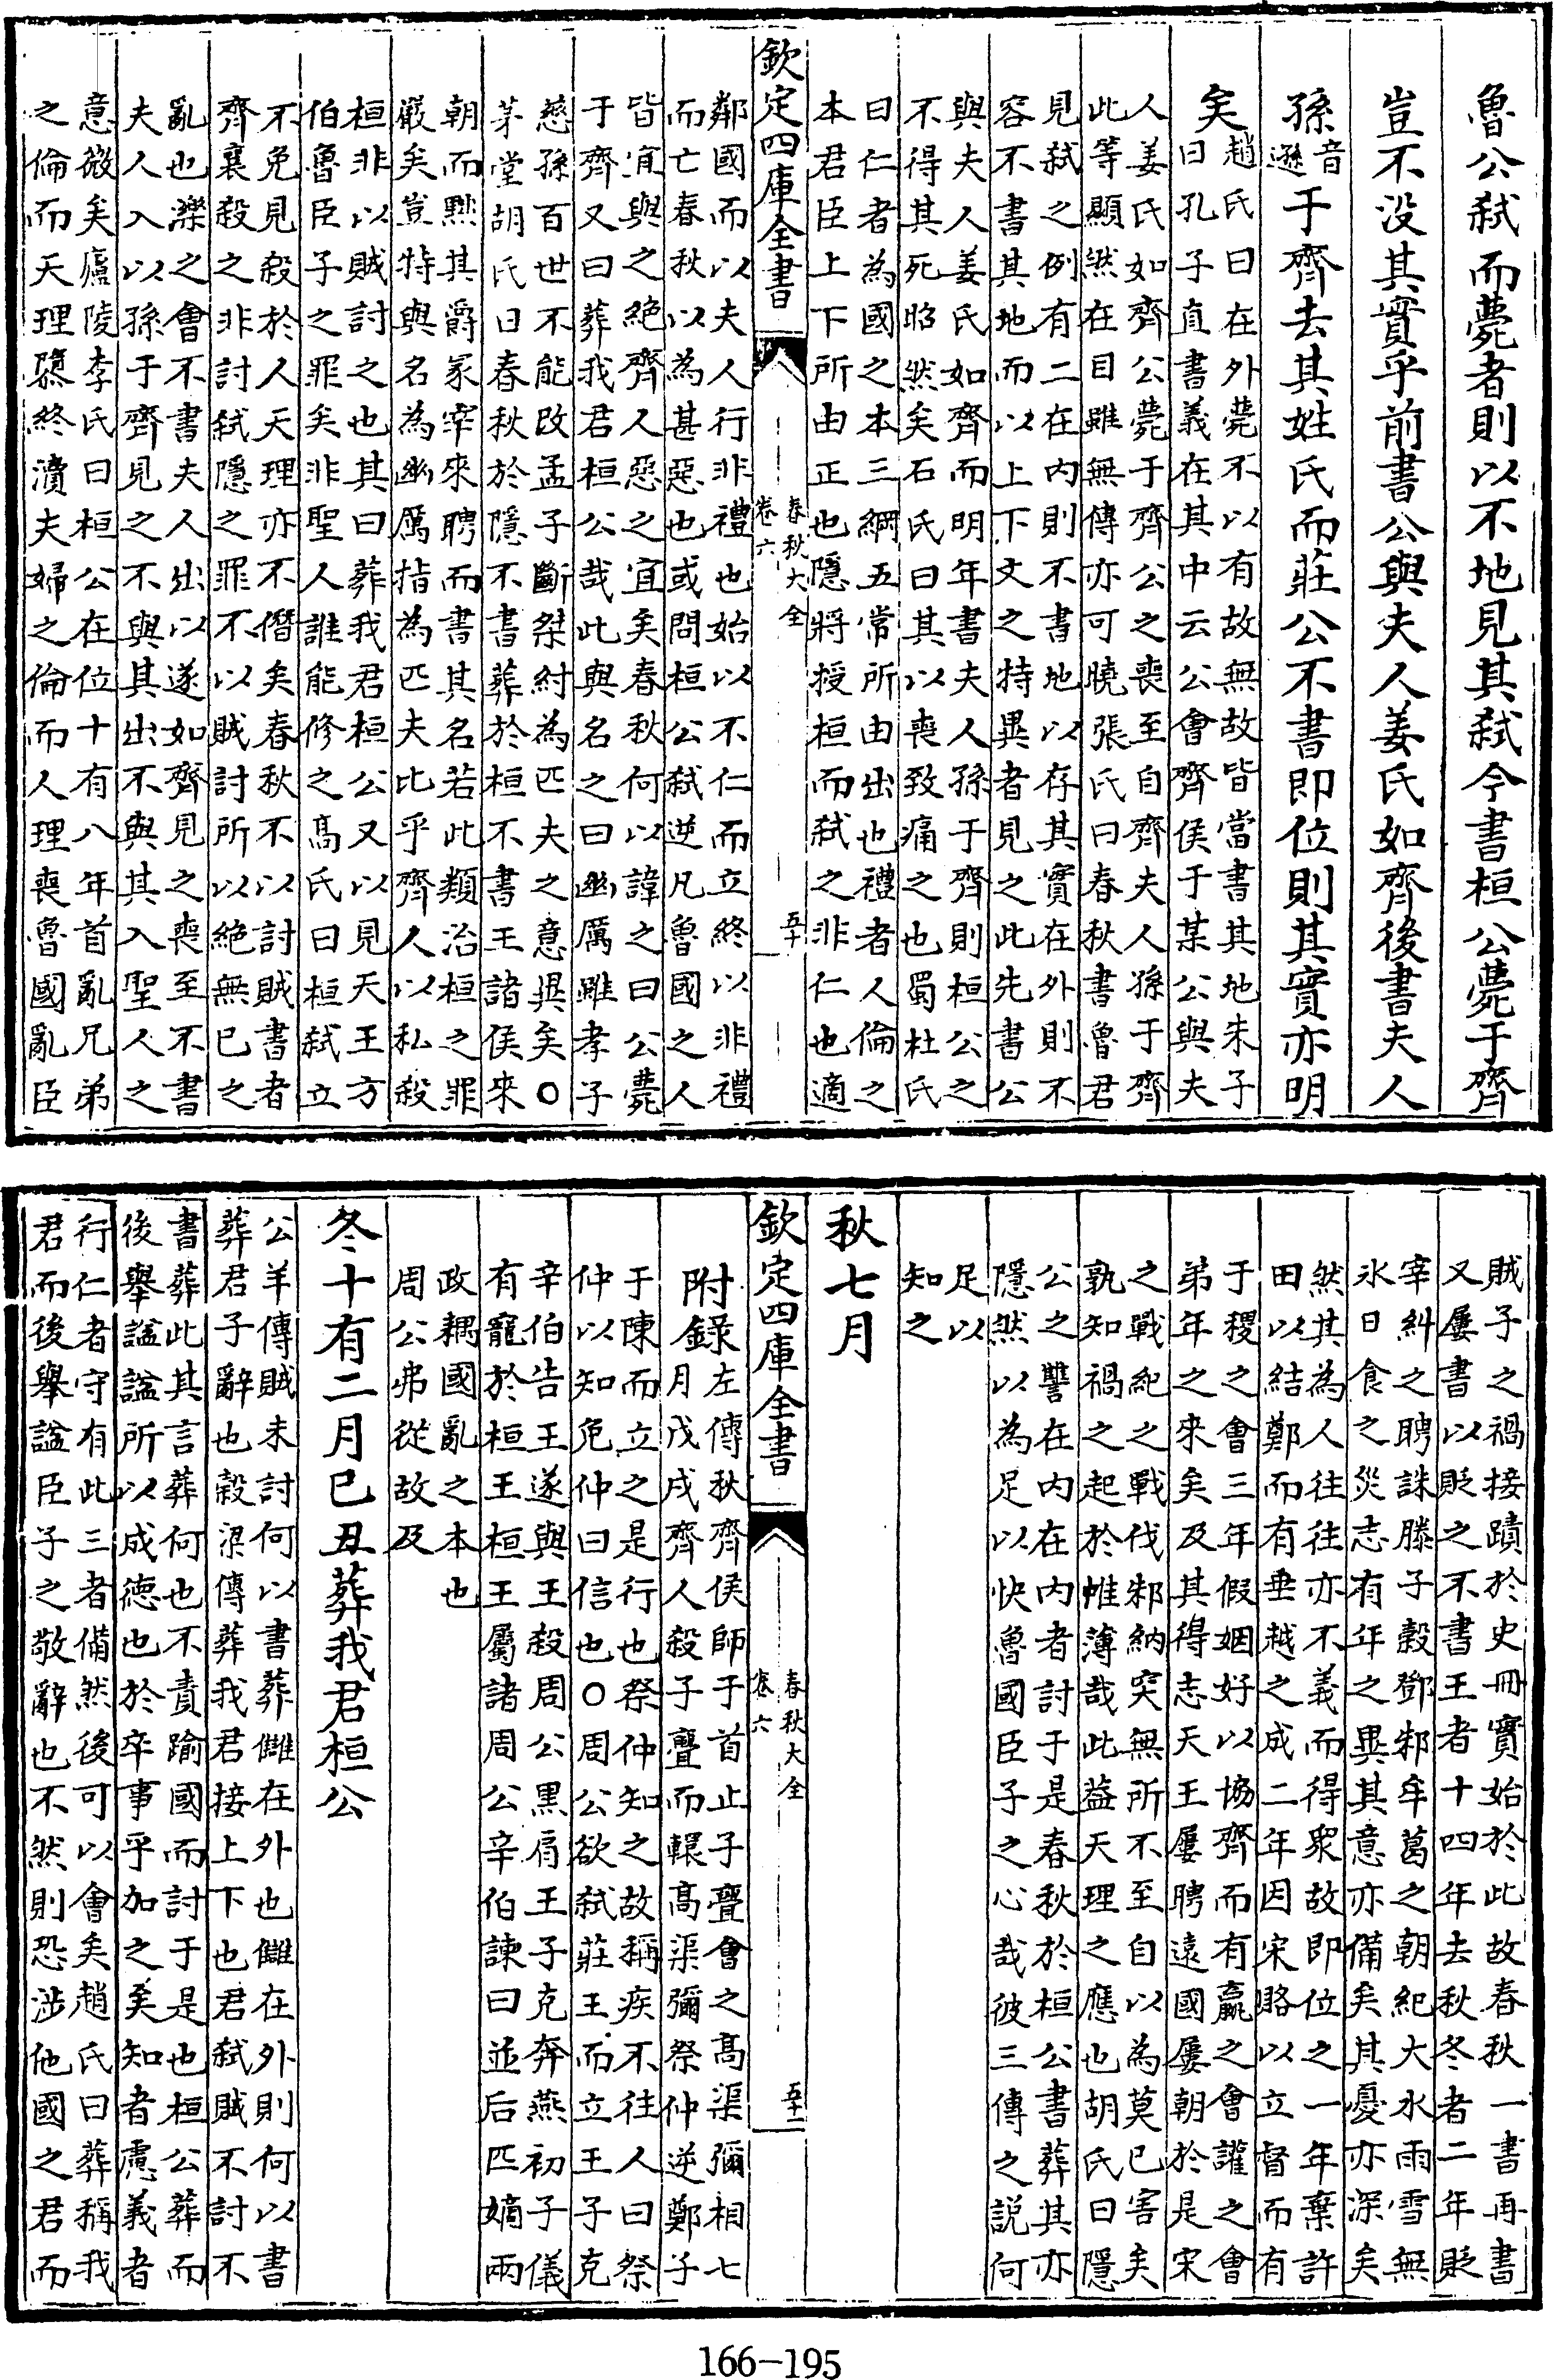 魯公弑而薨者則以不地見其弑今書桓公薨于齊
豈不没其實乎前書公與夫人姜氏如齊後書夫人
孫音遜于齊去其姓氏而莊公不書即位則其實亦明
矣趙氏曰在外薨不以有故無故皆當書其地朱子
曰孔子直書義在其中云公會齊侯于某公與夫
人姜氏如齊公薨于齊公之喪至自齊夫人孫于齊
此等顯然在目雖無傳亦可曉張氏曰春秋書魯君
見弑之例有二在内則不書地以存其實在外則不
容不書其地而以上下文之特異者見之此先書公
與夫人姜氏如齊而明年書夫人孫于齊則桓公之
不得其死昭然矣石氏曰其以喪致痛之也蜀杜氏
曰仁者為國之本三綱五常所由出也禮者人倫之
本君臣上下所由正也隱將授桓而弑之非仁也適
欽定四庫全書
春秋大全
卷六
五十
鄰國而以夫人行非禮也始以不仁而立終以非禮
而亡春秋以為甚惡也或問桓公弑逆凡魯國之人
皆宜與之絶齊人惡之宜矣春秋何以諱之曰公薨
于齊又曰葬我君桓公哉此與名之曰幽厲雖孝子
慈孫百世不能改孟子斷桀紂為匹夫之意異矣○
茅堂胡氏曰春秋於隱不書葬於桓不書王諸侯來
朝而黜其爵冢宰來聘而書其名若此類治桓之罪
嚴矣豈特與名為幽厲指為匹夫比乎齊人以私殺
桓非以賊討之也其曰葬我君桓公又以見天王方
伯魯臣子之罪矣非聖人誰能修之髙氏曰桓弑立
不免見殺於人天理亦不僭矣春秋不以討賊書者
齊襄殺之非討弑隱之罪不以賊討所以絶無已之
亂也濼之會不書夫人出以遂如齊見之喪至不書
夫人入以孫于齊見之不與其出不與其入聖人之
意微矣廬陵李氏曰桓公在位十有八年首亂兄弟
之倫而天理隳終瀆夫婦之倫而人理喪魯國亂臣
賊子之禍接蹟於史冊實始於此故春秋一書再書
又屢書以貶之不書王者十四年去秋冬者二年貶
宰糾之聘誅滕子穀鄧邾牟葛之朝紀大水雨雪無
氷日食之災志有年之異其意亦備矣其憂亦深矣
然其為人往往亦不義而得衆故即位之一年棄許
田以結鄭而有垂越之成二年因宋賂以立督而有
于稷之會三年假姻好以協齊而有嬴之會讙之會
弟年之來矣及其得志天王屢聘遠國屢朝於是宋
之戰紀之戰伐邾納突無所不至自以為莫已害矣
孰知禍之起於帷薄哉此益天理之應也胡氏曰隱
公之讐在内在内者討于是春秋於桓公書葬其亦
隱然以為足以快魯國臣子之心哉彼三傳之説何
足以
知之
秋七月
欽定四庫全書
春秋大全
卷六
五十一
附錄左傳秋齊侯師于首止子亹會之髙渠彌相七
月戊戌齊人殺子亹而轘髙渠彌祭仲逆鄭子
于陳而立之是行也祭仲知之故稱疾不往人曰祭
仲以知免仲曰信也○周公欲弑莊王而立王子克
辛伯告王遂與王殺周公黒肩王子克奔燕初子儀
有寵於桓王桓王屬諸周公辛伯諫曰並后匹嫡兩
政耦國亂之本也
周公弗從故及
冬十有二月巳丑葬我君桓公
公羊傳賊未討何以書葬讎在外也讎在外則何以書
葬君子辭也穀梁傳葬我君接上下也君弑賊不討不
書葬此其言葬何也不責踰國而討于是也桓公葬而
後舉諡諡所以成德也於卒事乎加之矣知者慮義者
行仁者守有此三者備然後可以會矣趙氏曰葬稱我
君而後舉諡臣子之敬辭也不然則恐涉他國之君而
166-195